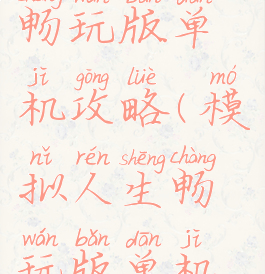 chàng wán bǎn dān
畅玩版单
jī gōng lüè mó
机攻略(模
nǐ rén shēng chàng
拟人生畅
wán bǎn dān jī
玩版单机